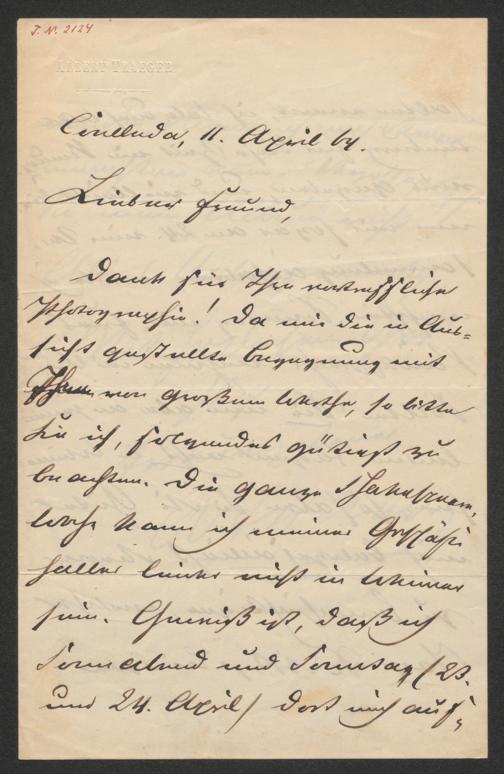 J. N. 2124
ALBERT TRAEGER
Cölleda, 11. April 64.
Lieber Freund,
Dank für Ihre vortreffliche
Photographie! Da mir die in Aus-
sicht gestellte Begegnung mit
Ihnen von großem Werthe, so bitte
Sie ich, folgendes gütigst zu
beachten. Die ganze Shakespeare-
woche kann ich meiner Geschäfte
halber leider nicht in Weimar
sein. Gewiß ist, daß ich
Sonnabend und Sonntag (23.
und 24. April) dort mich auf-